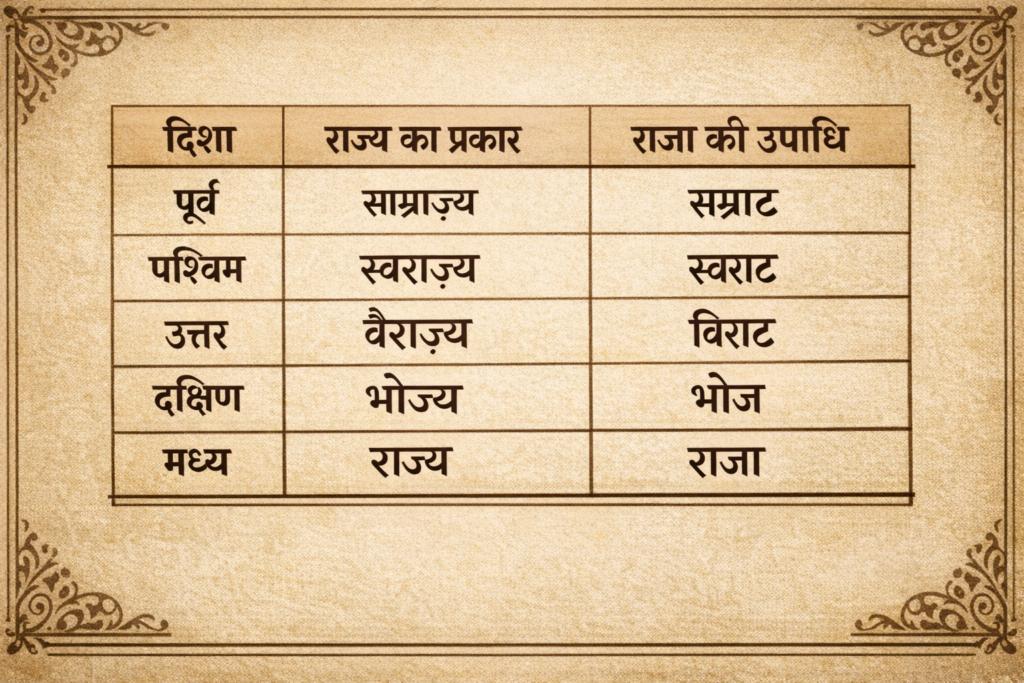 दिशा राज्य का प्रकार राजा की उपाधि
पूर्व साम्राज़्य सम्राट
पश्विम स्वराज़्य स्वराट
उत्तर वैराज़्य विराट
दक्षिण भोज्य भोज
मध्य राज्य राजा